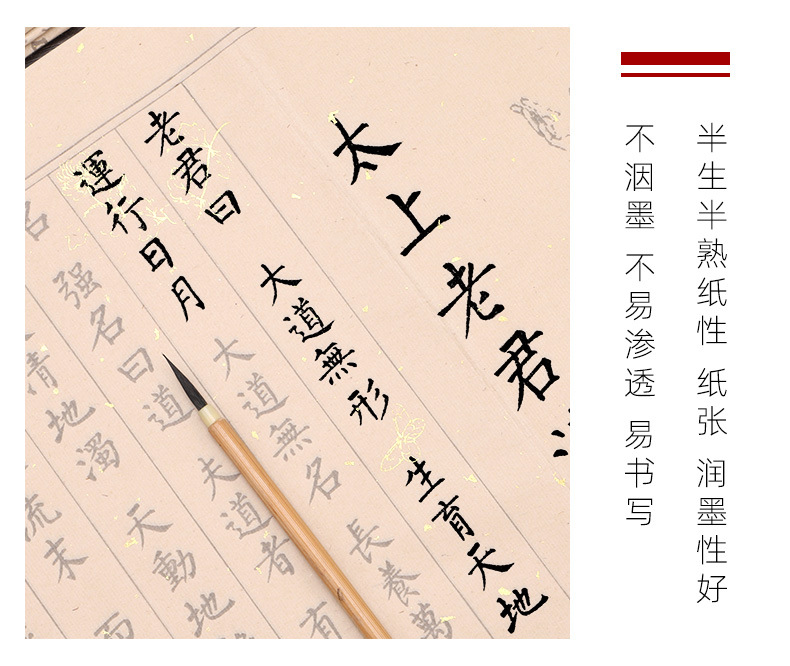 半生半熟纸性 纸张 润墨性好
不洇墨 不易渗透 易书写
太上老君
老君曰 大道無形 生育天地
運行日月 大道無名 長養萬
名 强名曰道 夫道者 有
清地濁 天動地
流末 而